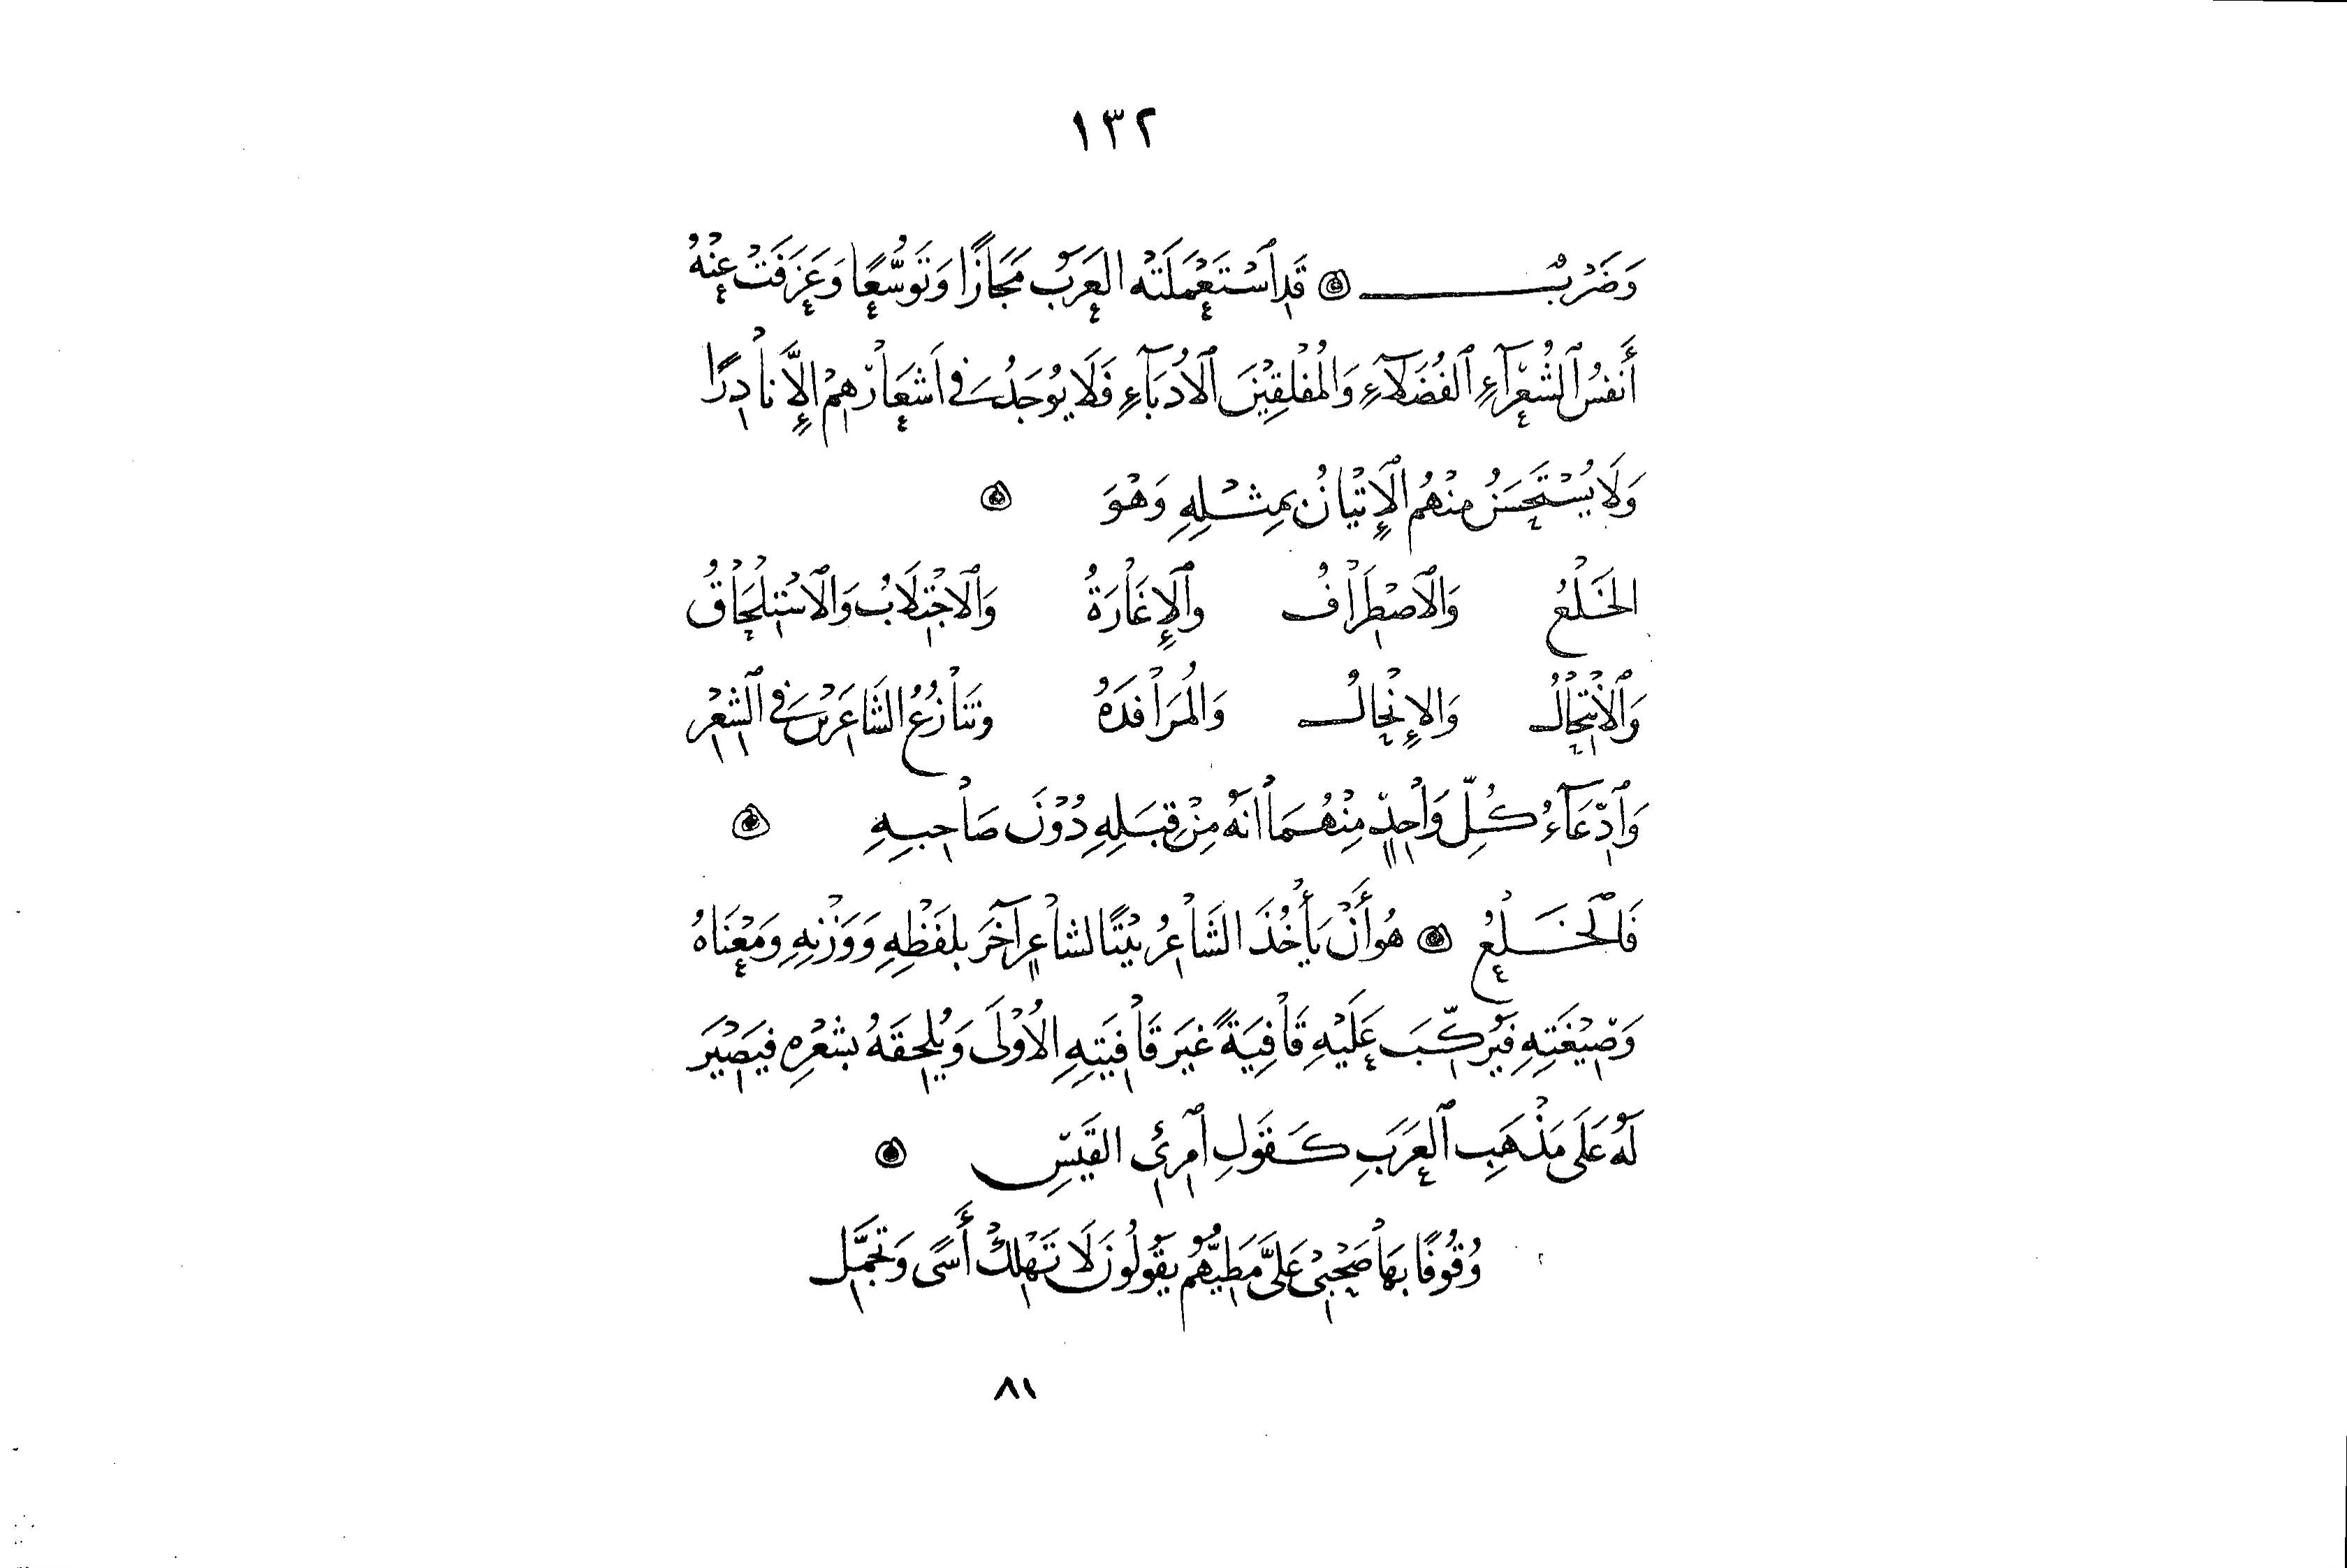 ١٣٢
وَضَرْبٌ قَدِ ٱسْتَعْمَلَتْهُ العَرَبُ مَجَازًا وَتَوَسُّعًا وَعَزَفَتْ عَنْهُ
أَنفُسُ ٱلشُّعَرَآءِ ٱلفُضَلَآءِ وَالْمُفْلِقِيْنَ ٱلْأُدَبَآءِ فَلَا يُوْجَدُ فِي اَشْعَارِهِمْ الَّا نَادِرًا
وَلَا يُسْتَحْسَنُ مِنْهُمُ الْإِتْيَانُ بِمِثْلِهِ وَهْوَ
الخَلْعُ وَٱلْاصْطِرَافُ وَٱلْإِغَارَةُ وَٱلْاجْتِلَابُ وَٱلْاسْتِلْحَاقُ
وَٱلْانْتِحَالُ وَالْإِنْحَالُ وَالْمُرَافَدَةُ وَتَنَازُعُ الشَّاعِرَيْنِ فِي ٱلشِّعْرِ
وَٱدِّعَآءُ كُلِّ وَاحِدٍ مِنْهُمَا انَهُ مِنْ قِبَلِهِ دُوْنَ صَاحِبِهِ
فَٱلْخَلْعُ هُوَ أَنْ يَأْخُذَ الشَّاعِرُ بَيْتًا لشَاعِرٍ آخَرَ بِلَفْظِهِ وَوَزْنِهِ وَمَعْنَاهُ
وَصِيْغَتِهِ فَيُرَكِّبَ عَلَيْهِ قَافِيَةً غَيْرَ قَافِيَتِهِ الْأُوْلَى وَيُلْحِقَهُ بِشِعْرِهِ فَيَصِيْرَ
لَهُ عَلَى مَذْهَبِ ٱلْعَرَبِ كَقَوْلِ ٱمْرِئِ القَيْسِ
وُقُوفًا بِهَا صَحْبِيْ عَلَيَّ مَطِيَّهُمْ يَقُولُونَ لَا تَهْلِكْ أَسًى وَتَجَمَّلِ
٨١